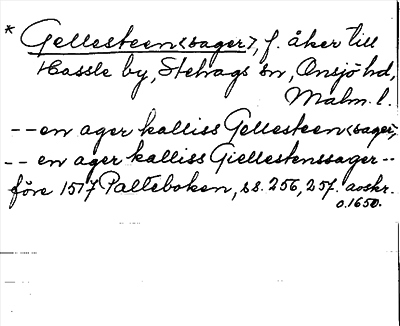 * Gellesteen<sager>, f. åker till
Hassle by, Stehags sn, Onsjö hd,
Malm. l.
-- en ager kalliss Gellesteen<sager,
-- en ager kalliss Giellestenssager --
före 1517 Palteboken, ss. 256, 257. avskr.
o. 1650.